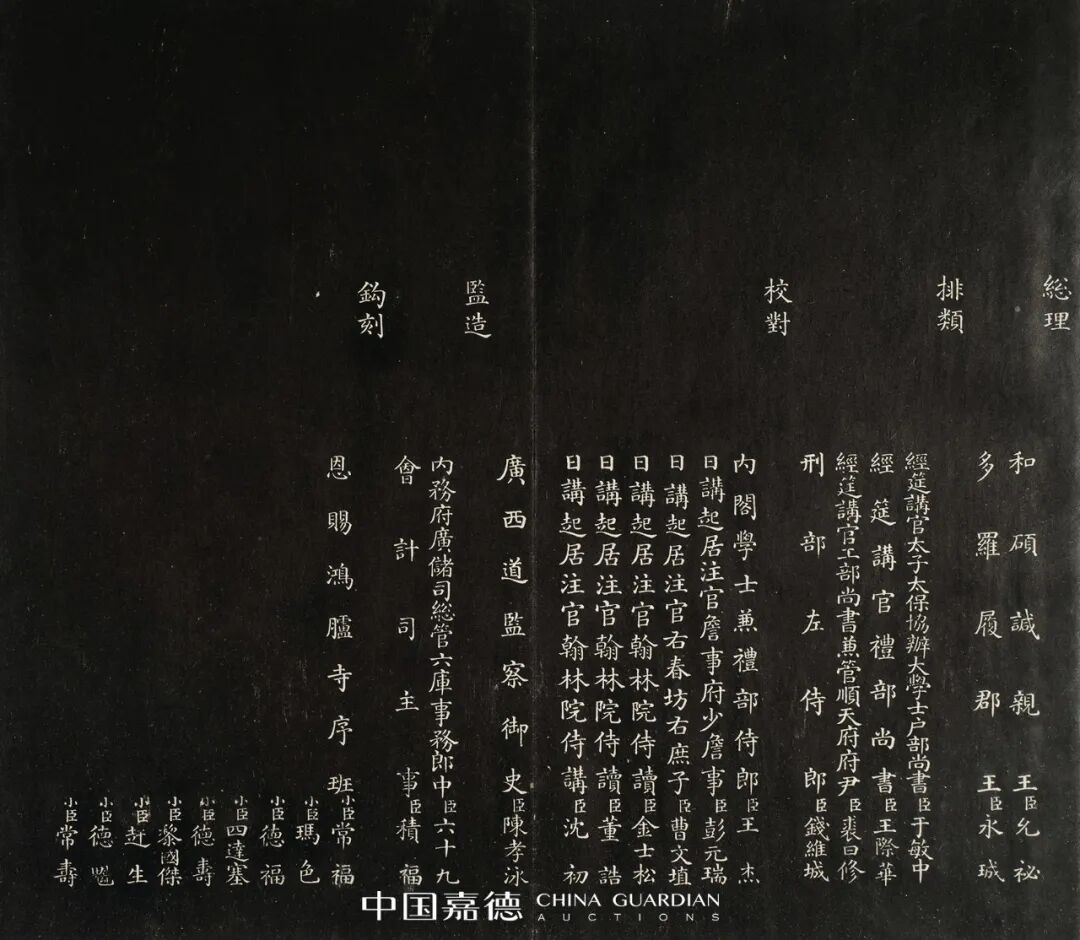 総理
和碩諴親王臣允祕
多羅履郡王臣永珹
排類
經筵講官太子太保協辦大學士戶部尚書臣于敏中
經筵講官禮部尚書臣王際華
經筵講官工部尚書兼管順天府府尹臣裘曰修
刑部左侍郎臣錢維城
校對
內閣學士兼禮部侍郎臣王杰
日講起居注官詹事府少詹事臣彭元瑞
日講起居注官右春坊右庶子臣曹文埴
日講起居注官翰林院侍讀臣金士松
日講起居注官翰林院侍讀臣董誥
日講起居注官翰林院侍講臣沈初
廣西道監察御史臣陳孝泳
監造
內務府廣儲司總管六庫事務郎中臣六十九
會計司主事臣積福
鈎刻
恩賜鴻臚寺序班小臣常福
小臣瑪色
小臣德福
小臣四達塞
小臣德壽
小臣黎國傑
小臣赶生
小臣德
小臣常壽
中国嘉德 CHINA GUARDIAN
AUCTIONS